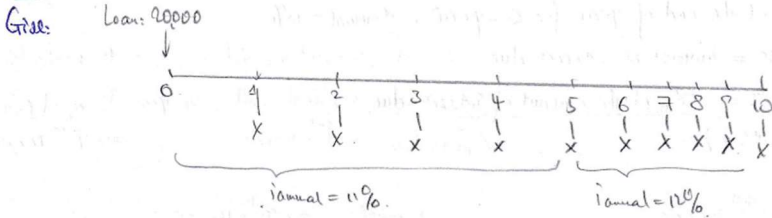 Give: Loan: 20,000
0 1 2 3 4 5 6 7 8 9 10
X X X X X X X X X X
i annual = 11%. i annual = 12%.